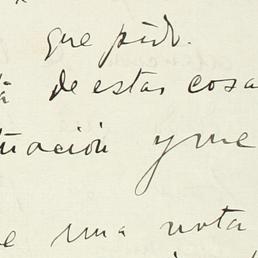 que pido.
de estas cosa
tuación y me
e una nota